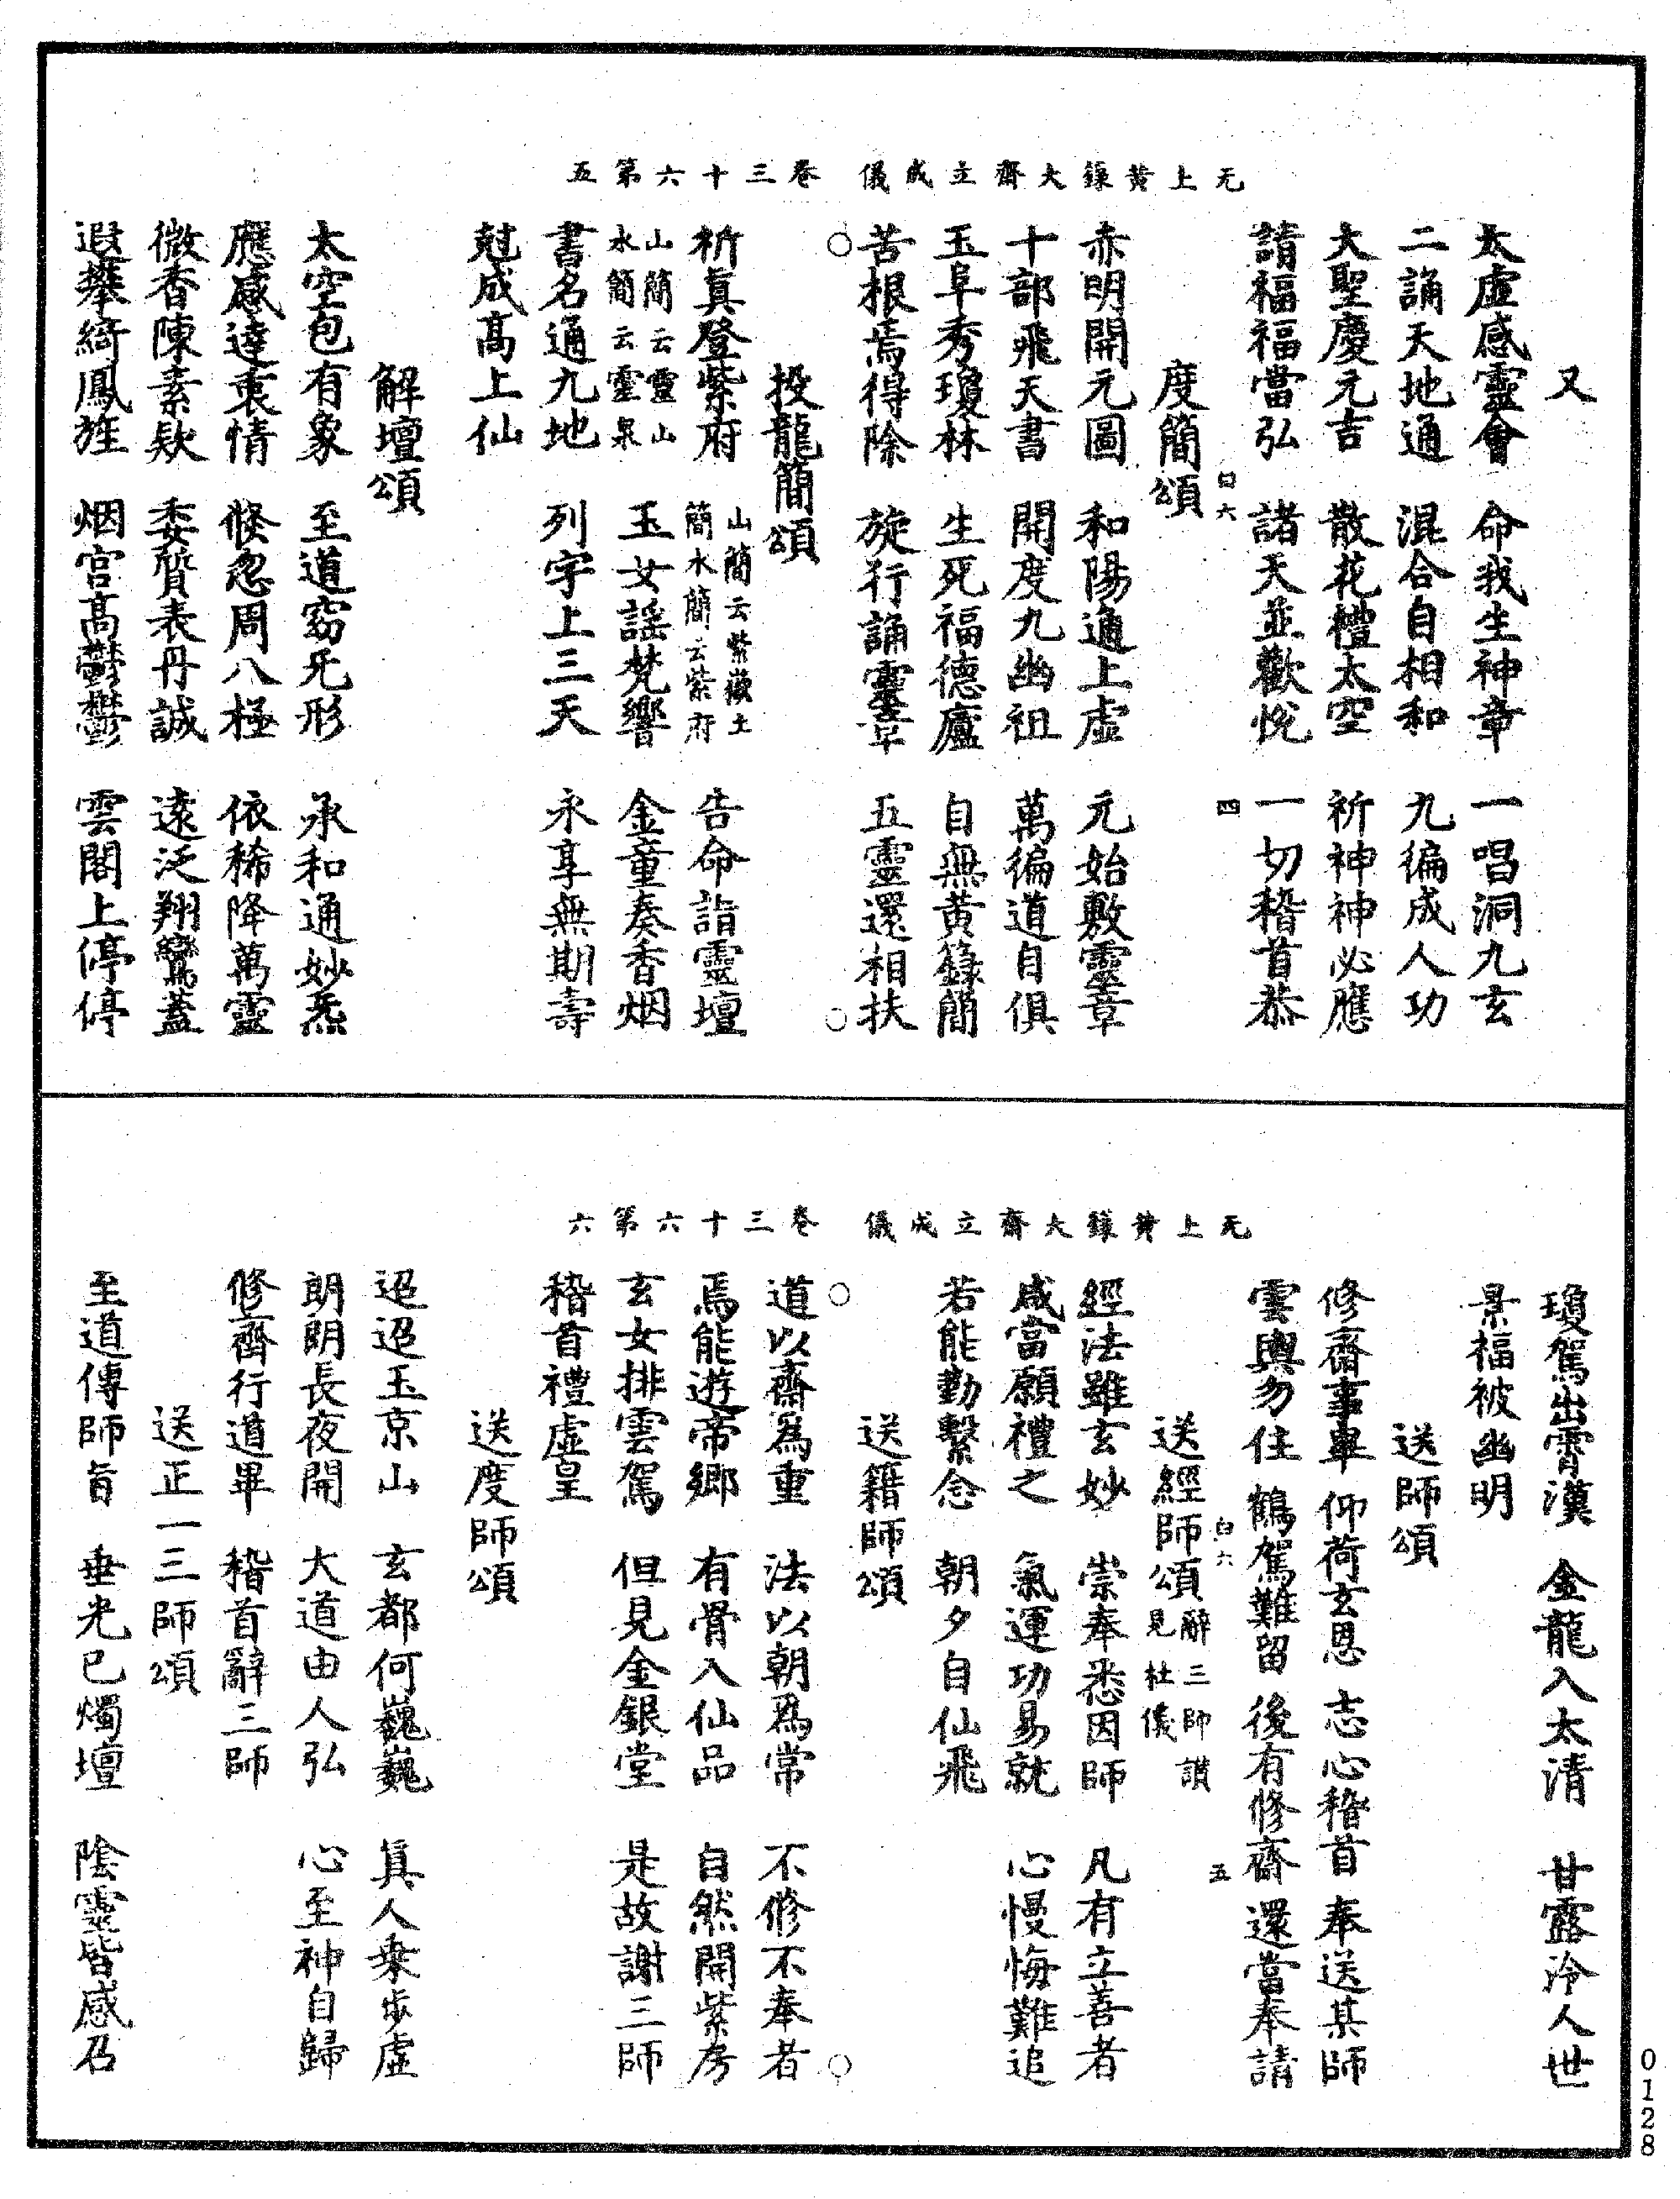 无上黃籙大齋立成儀　卷三十六第五
又
太虛感靈會　命我生神章　一唱洞九玄
二誦天地通　混合自相和　九徧成人功
大聖慶元吉　散花禮太空　祈神神必應
請福福當弘　諸天並歡悅　一切稽首恭
白六　四
度簡頌
赤明開元圖　和陽通上虛　元始敷靈章
十部飛天書　開度九幽祖　萬徧道自俱
玉阜秀瓊林　生死福德廬　自無黃籙簡
苦根焉得除　旋行誦靈章　五靈還相扶
投龍簡頌
祈眞登紫府　山簡云紫微土簡水簡云紫府　告命詣靈壇
山簡云靈山水簡云靈泉　玉女謠梵響　金童奏香烟
書名通九地　列字上三天　永享無期壽
尅成高上仙
解壇頌
太空包有象　至道窈无形　承和通妙炁
應感達衷情　倐忽周八極　依稀降萬靈
微香陳素欵　委質表丹誠　遠泛翔鸞蓋
遐攀綺鳳旌　烟宮高鬱鬱　雲閣上停停
无上黃籙大齋立成儀　卷三十六第六
瓊駕出霄漢　金龍入太清　甘露泠人世
景福被幽明
送師頌
修齋事畢　仰荷玄恩　志心稽首　奉送某師
雲輿勿住　鶴駕難留　後有修齋　還當奉請
白六　五
送經師頌 辭三師讚見杜儀
經法雖玄妙　崇奉悉因師　凡有立善者
咸當願禮之　氣運功易就　心慢悔難追
若能勤繫念　朝夕自仙飛
送籍師頌
道以齋爲重　法以朝爲常　不修不奉者
焉能遊帝鄉　有骨入仙品　自然開紫房
玄女排雲駕　但見金銀堂　是故謝三師
稽首禮虛皇
送度師頌
迢迢玉京山　玄都何巍巍　眞人乗步虛
朗朗長夜開　大道由人弘　心至神自歸
修齋行道畢　稽首辭三師
送正一三師頌
至道傳師旨　垂光已燭壇　陰靈皆感召
0128